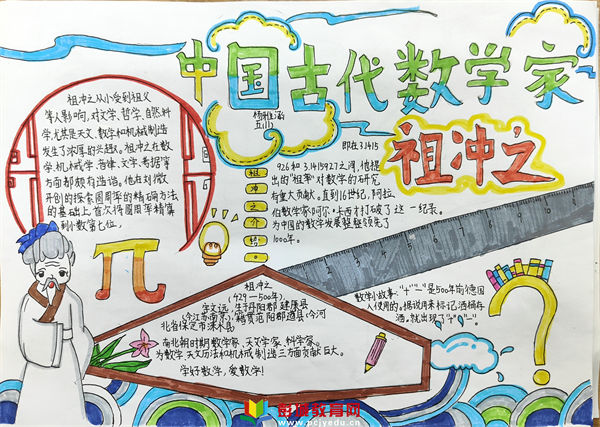 中国古代数学家
祖冲之
五(1)
祖冲之从小受到祖父
等人影响,对文学,哲学,自然科
学尤其是天文,数学和机械制造
发生了浓厚的兴趣。祖冲之在数
学,机械学,音律,文学,考据等
方面都颇有造诣。他在刘徽
开创的探索圆周率的精确方法
的基础上,首次将圆周率精算
到小数第七位,
即在3.1415
926和3.1415927之间,他提
出的"祖率"对数学的研究
有重大贡献。直到16世纪,阿拉
伯数学家阿尔·卡西才打破了这一纪录。
为中国的数学发展整整领先了
1000年。
祖
冲
之
介
绍
π
祖冲之
(429—500年)
字文远,生于丹阳郡建康县
(今江苏南京),籍贯范阳郡遒县(今河
北省保定市涞水县
南北朝时期数学家,天文学家,科学家。
为数学,天文历法和机械制造三方面贡献巨大。
学好数学,爱数学!
0 1 2 3 4 5 6 7 8 9 10
数学小故事:"+""—"是500年前德国
人使用的。据说用来标记酒桶存
酒,就出现了"+""—"。
?
中颖教育网
www.pcjyedu.cn